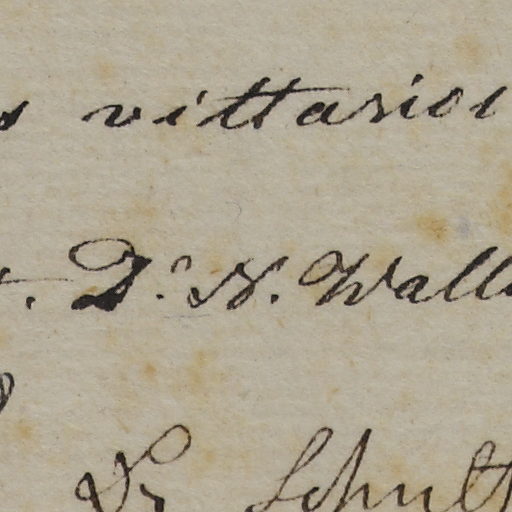 s vittarioi
t. D. N. Wall
Dr Schult